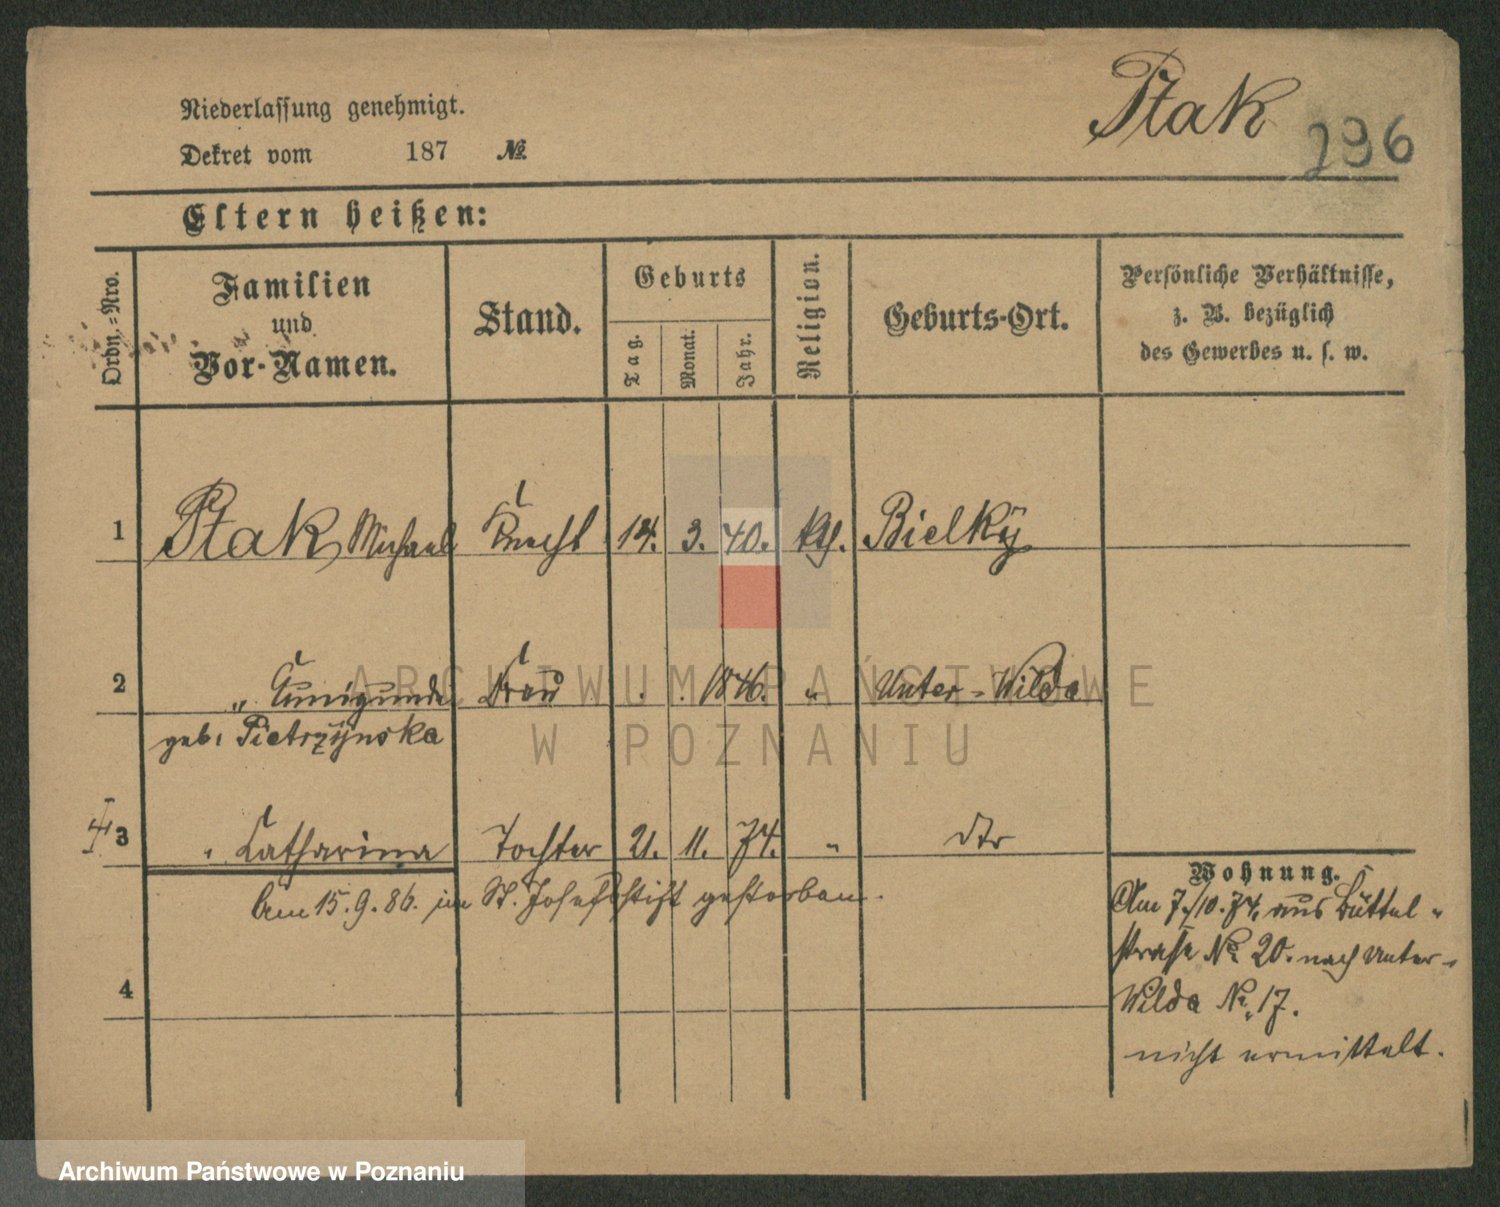 Ptak
296
Niederlassung genehmigt.
Dekret vom 187 №
Eltern heißen:
Ordn.-Nro.
Familien
und
Vor-Namen.
Stand.
Geburts
Tag.
Monat.
Jahr.
Religion.
Geburts-Ort.
Persönliche Verhältnisse,
z. B. bezüglich
des Gewerbes u. s. w.
1 Ptak, Michael Knecht 14. 3. 40. kth. Bielky
2 " Cunigunde Frau . . 1846. " Unter-Wilda
geb. Pietrzynska
3 " Catharina Tochter 21. 11. 74. " dto
Am 15.9.86. im St. Josefsstift gestorben.
4
Wohnung.
Am 7./10.74. aus Büttel-
straße No 20. nach Unter-
Wilda No 17.
nicht ermittelt.
ARCHIWUM PAŃSTWOWE
W POZNANIU
Archiwum Państwowe w Poznaniu